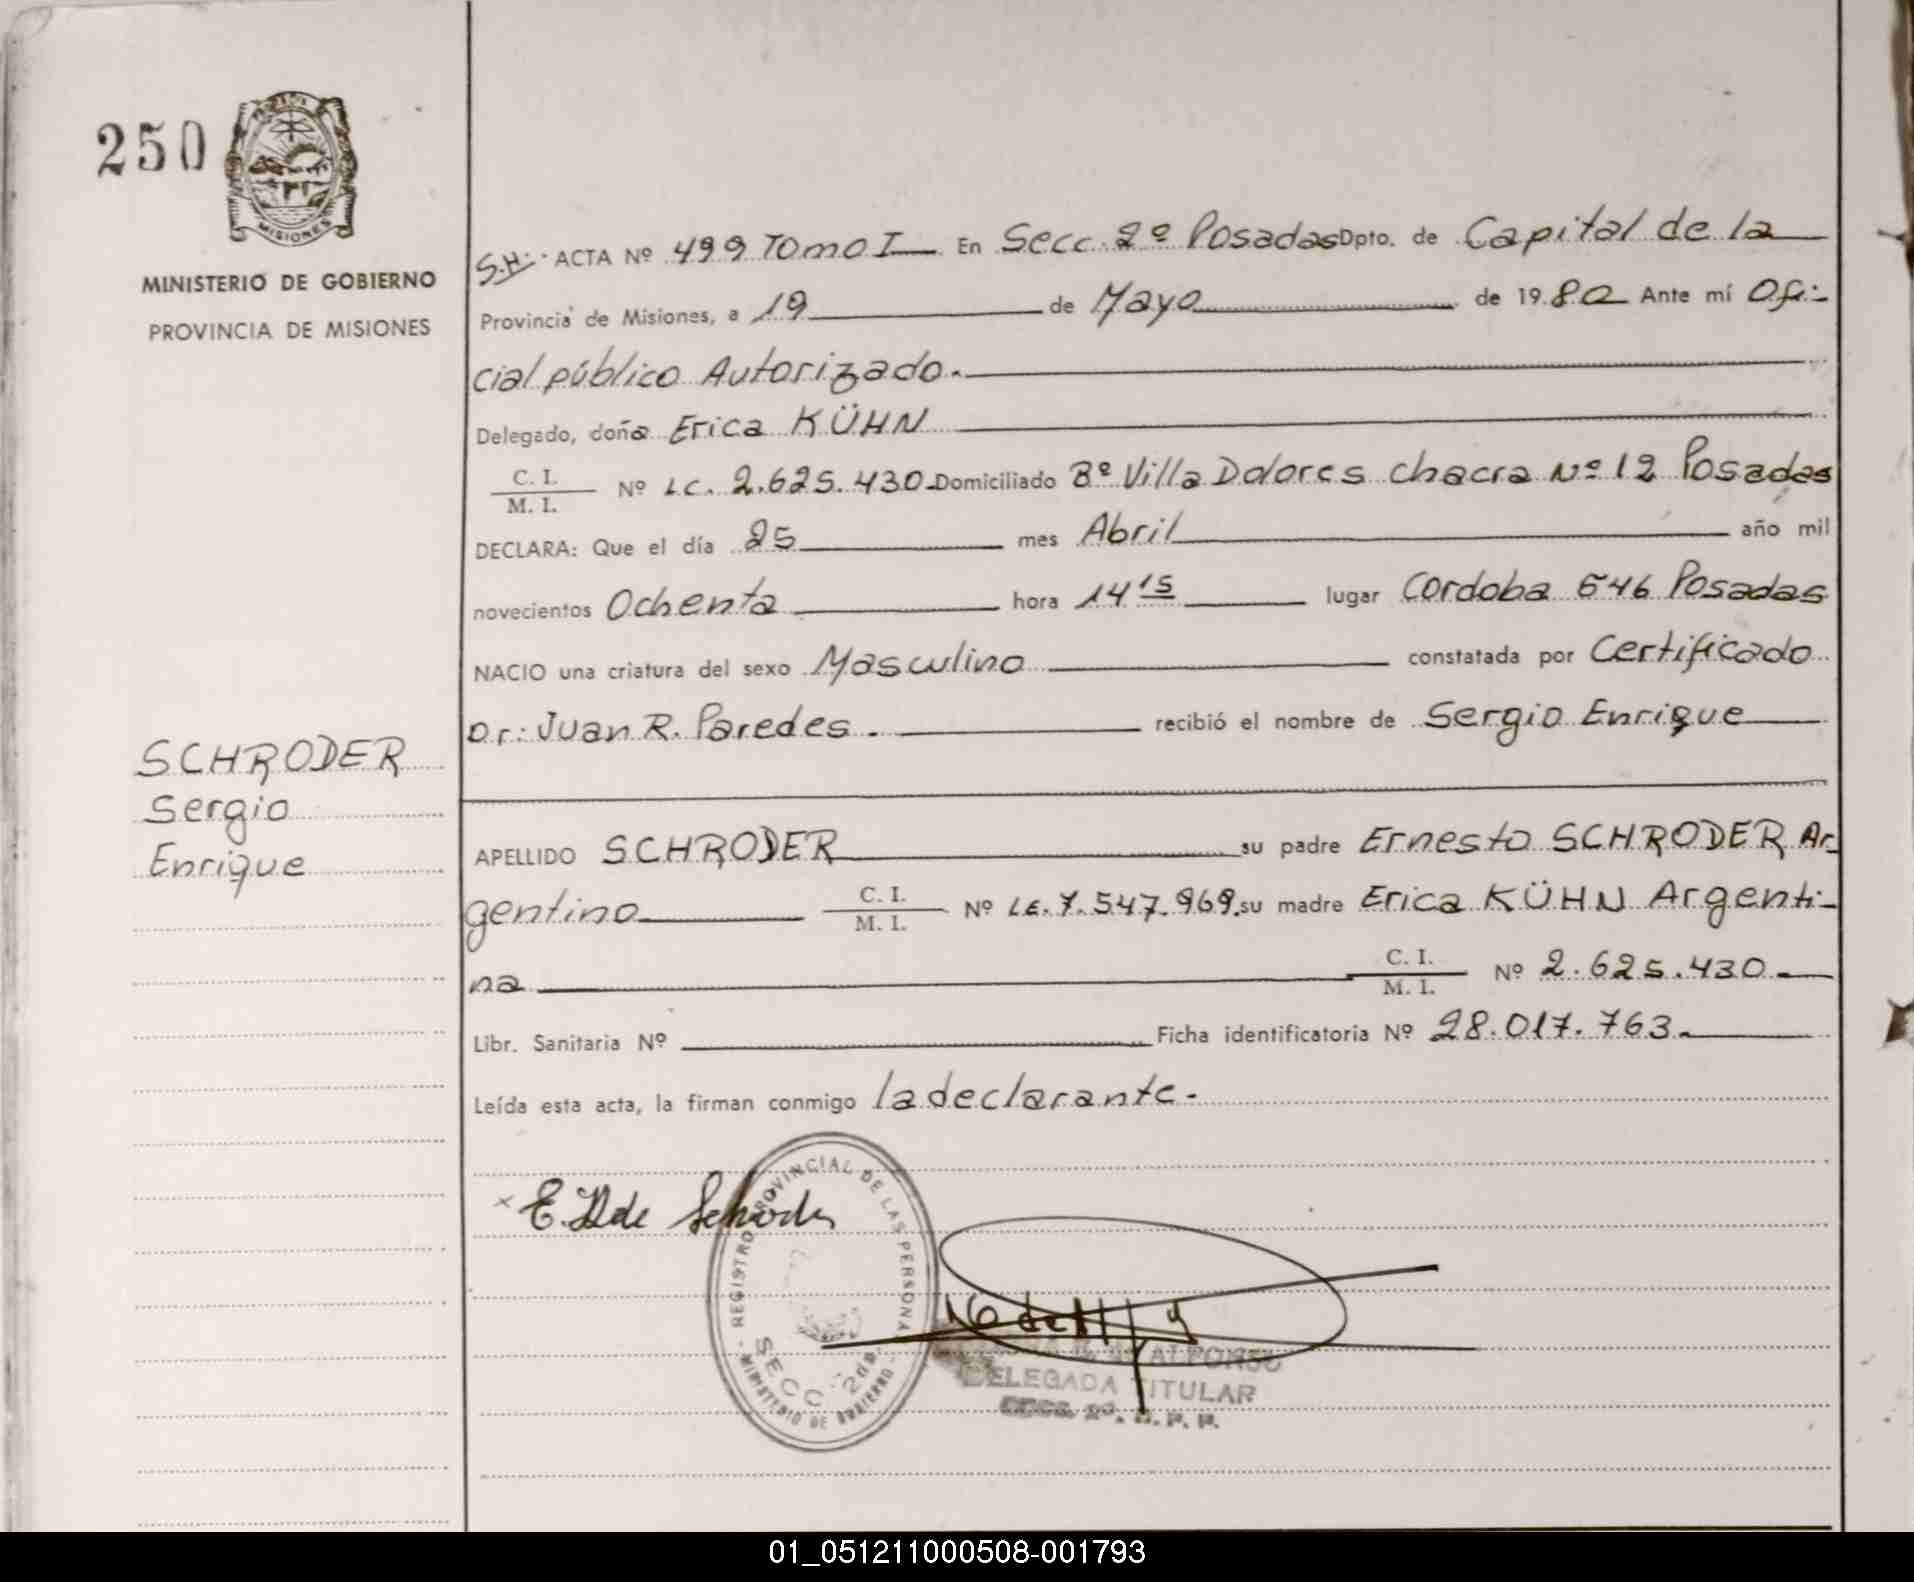 250
PROVINCIA DE
MISIONES
MINISTERIO DE GOBIERNO
PROVINCIA DE MISIONES
SCHRODER
Sergio
Enrique
S.H: ACTA Nº 499 Tomo I En Secc. 2º Posadas Dpto. de Capital de la
Provincia de Misiones, a 19 de Mayo de 1980 Ante mí Ofi-
cial público Autorizado.
Delegado, doña Erica KÜHN
C. I.
M. I. Nº LC. 2.625.430 Domiciliado Bº Villa Dolores Chacra Nº 12 Posadas
DECLARA: Que el día 25 mes Abril año mil
novecientos Ochenta hora 14 15 lugar Cordoba 646 Posadas
NACIO una criatura del sexo Masculino constatada por Certificado
Dr: Juan R. Paredes. recibió el nombre de Sergio Enrique
APELLIDO SCHRODER su padre Ernesto SCHRODER Ar-
gentino C. I.
M. I. Nº LE. 7.547.969. su madre Erica KÜHN Argenti-
na C. I.
M. I. Nº 2.625.430.
Libr. Sanitaria Nº Ficha identificatoria Nº 28.017.763.
Leída esta acta, la firman conmigo la declarante.
REGISTRO PROVINCIAL DE LAS PERSONAS
SECC. 2da
MINISTERIO DE GOBIERNO
DE ALFONSO
DELEGADA TITULAR
01_051211000508-001793